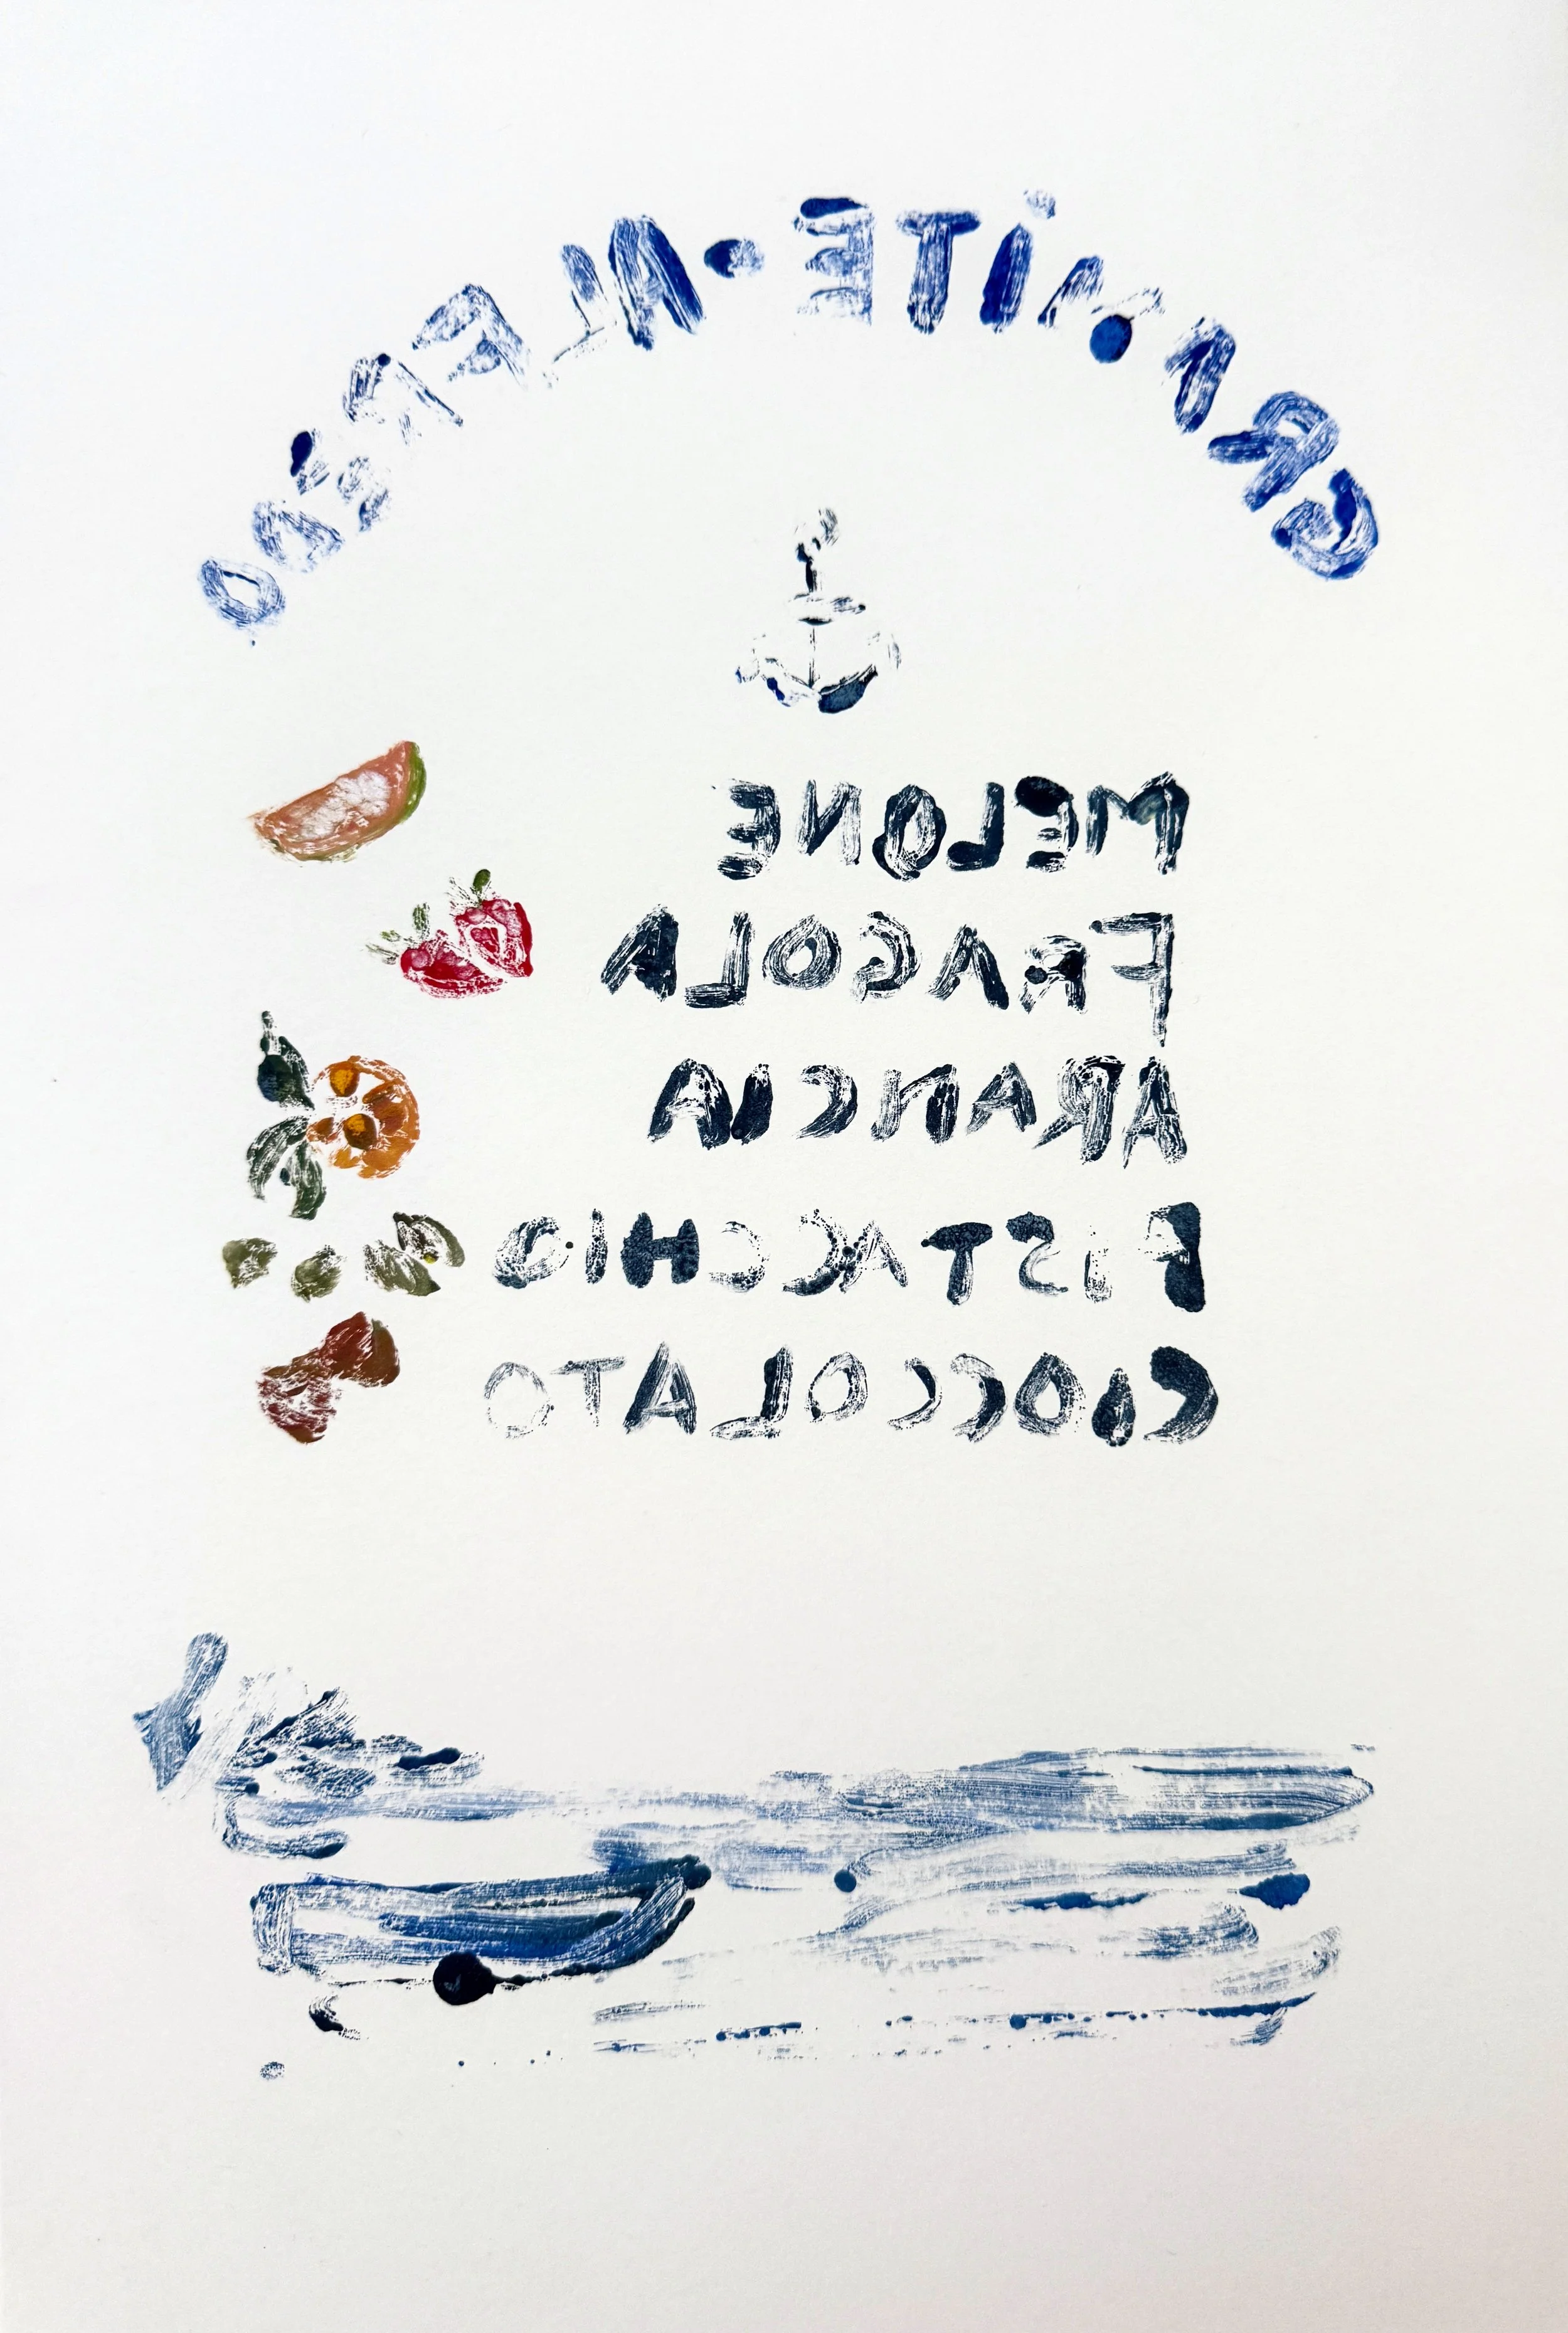 GRANITE • ALFREDO
MELONE
FRAGOLA
ARANCIA
PISTACCHIO
CIOCCOLATO